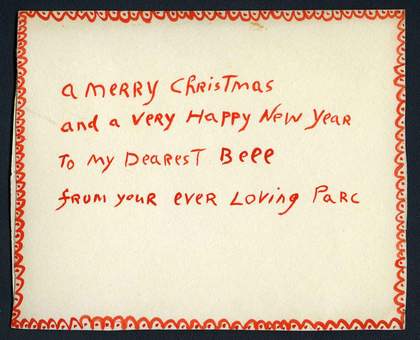 a MERRY CHRISTMAS
and a VERY HAPPY NEW YEAR
TO MY DEAREST Beee
fRUM YOUR EVER LOVING PARC